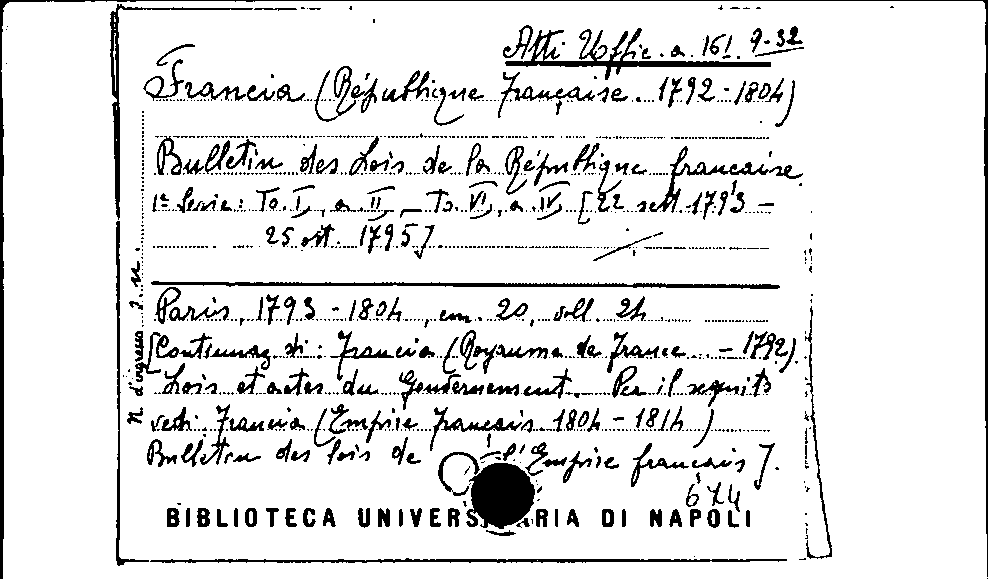 Atti Uffic. a 161. 9-32
Francia (République Française. 1792-1804)
Bulletin des Lois de la République française
1ª Serie: To. I, a. II, – To. VI, a. IV, [22 sett. 1793 –
25 ott. 1795].
Paris, 1793-1804, cm. 20, voll. 24
[Continuaz. di: Francia (Royaume de France ... – 1792).
Lois et actes du Gouvernement. Per il seguito
vedi: Francia (Empire français. 1804-1814)
Bulletin des lois de l'Empire français].
674
BIBLIOTECA UNIVERSITARIA DI NAPOLI
N. d'ingresso